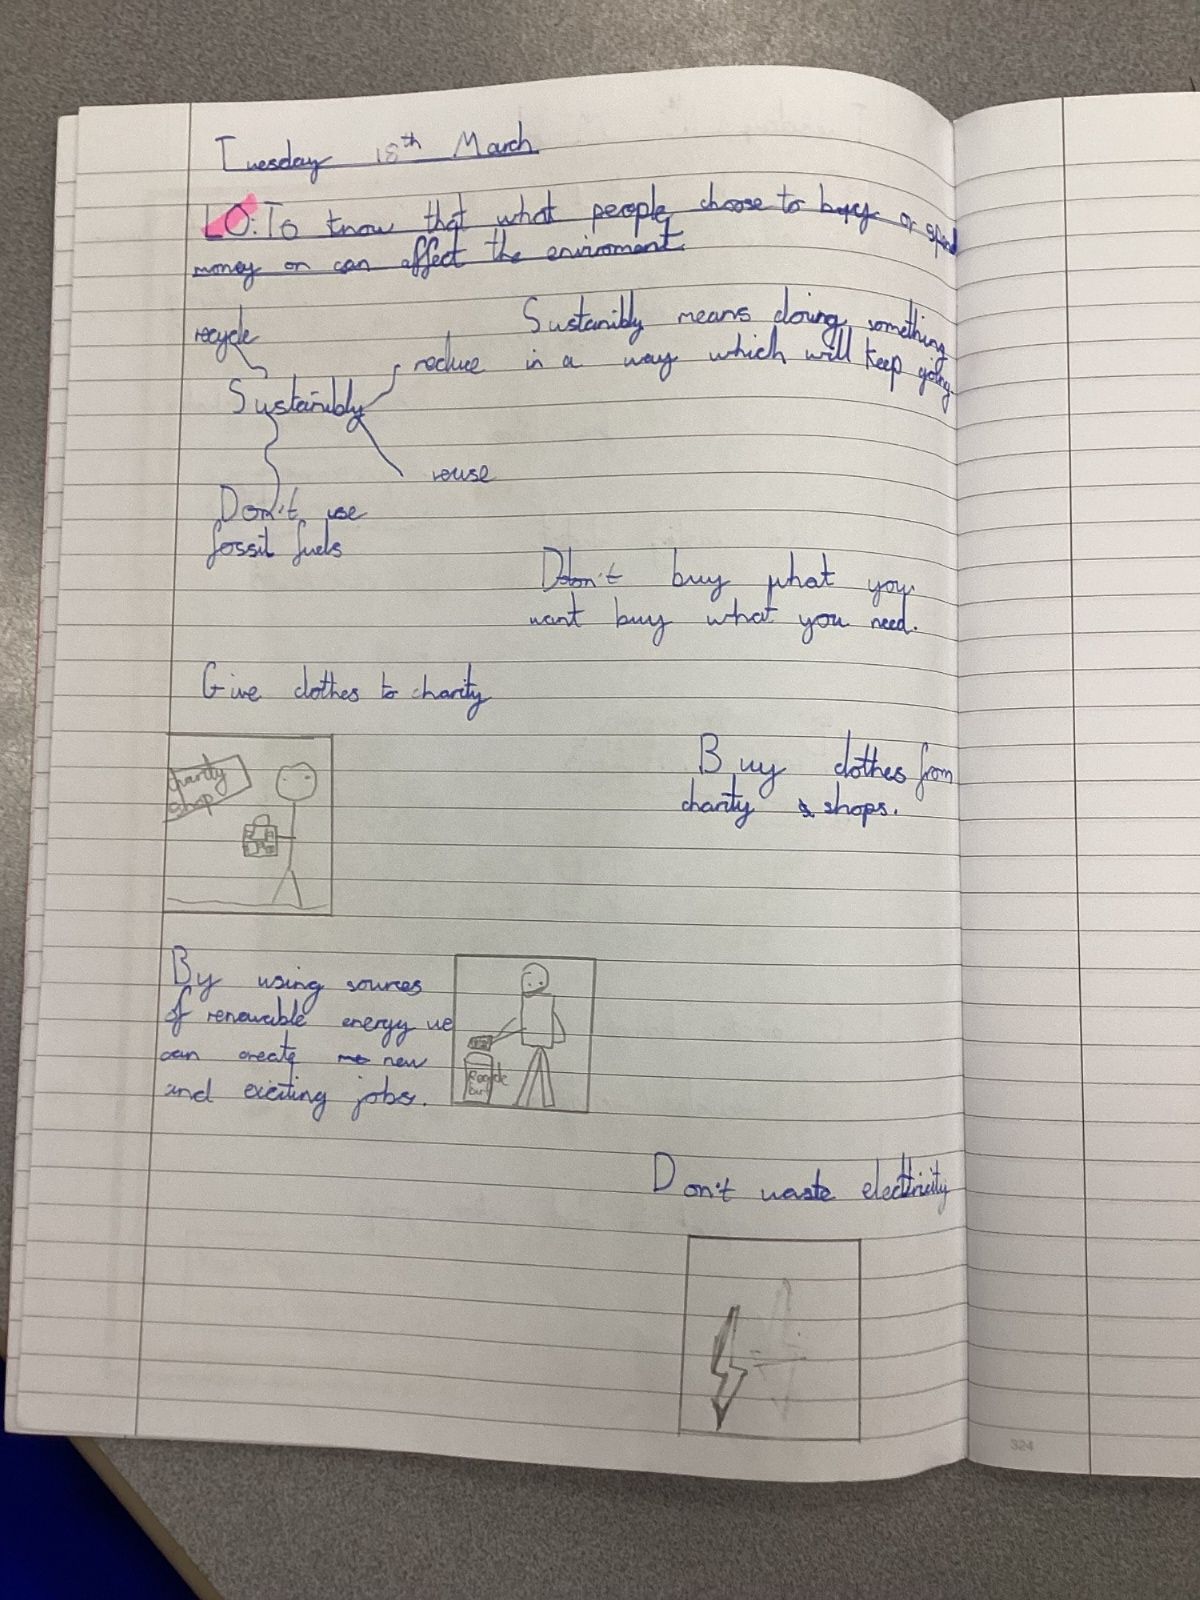 Tuesday 18th March
LO: To know that what people choose to buy or spend
money on can affect the enviroment.
recycle
Sustanibly means doing something
reduce in a way which will keep going.
Sustanibly
reuse
Don't use
fossil fuels
Don't buy what you
want buy what you need.
Give clothes to charity
charity
shop
Buy clothes from
charity shops.
By using sources
of renewable energy we
can create new
and exciting jobs.
Recycle
Don't waste electricity
324